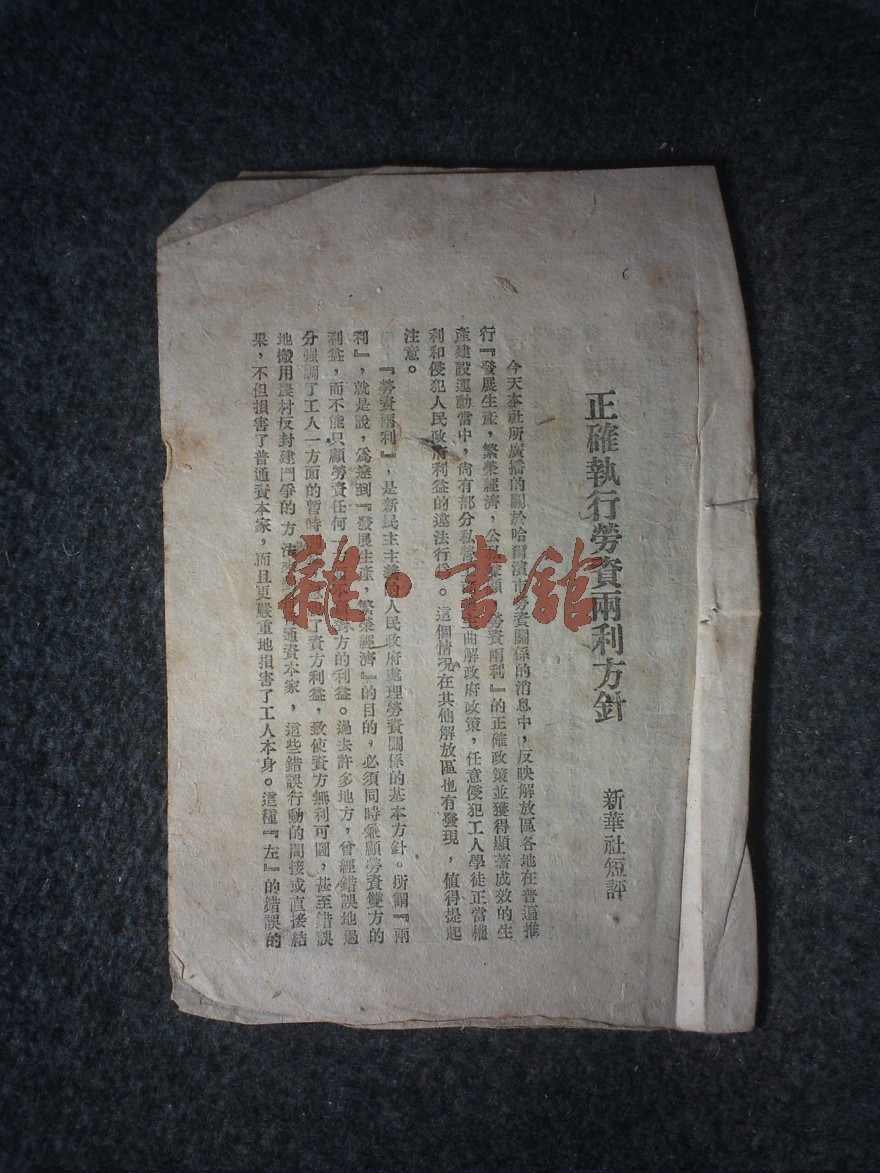 正確執行勞資兩利方針
新華社短評
今天本社所廣播的關於哈爾濱市勞資關係的消息中，反映解放區各地在普遍推
行『發展生產，繁榮經濟，公私兼顧，勞資兩利』的正確政策並獲得顯著成效的生
產建設運動當中，尚有部分私營 曲解政府政策，任意侵犯工人學徒正當權
利和侵犯人民政府利益的違法行爲。這個情況在其他解放區也有發現，值得提起
注意。
『勞資兩利』，是新民主主義的人民政府處理勞資關係的基本方針。所謂『兩
利』，就是說，爲達到『發展生產，繁榮經濟』的目的，必須同時兼顧勞資雙方的
利益，而不能只顧勞資任何 方 對方的利益。過去許多地方，曾經錯誤地過
分强調了工人一方面的暫時 了資方利益，致使資方無利可圖，甚至錯誤
地搬用農村反封建鬥爭的方法 通資本家，這些錯誤行動的間接或直接結
果，不但損害了普通資本家，而且更嚴重地損害了工人本身。這種『左』的錯誤的
雜·書館